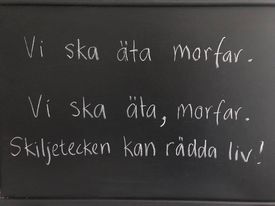 Vi ska äta morfar.
Vi ska äta, morfar.
Skiljetecken kan rädda liv!